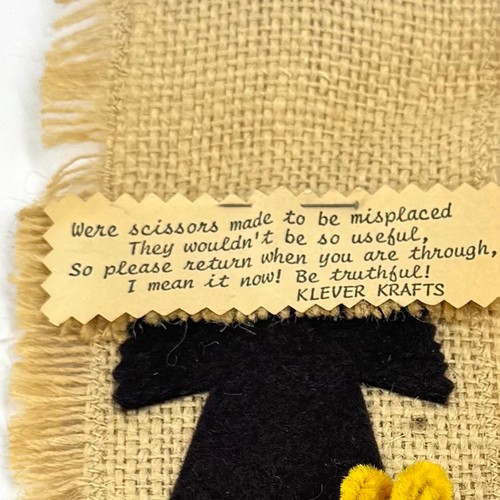 Were scissors made to be misplaced
They wouldn't be so useful,
So please return when you are through,
I mean it now! Be truthful!
KLEVER KRAFTS